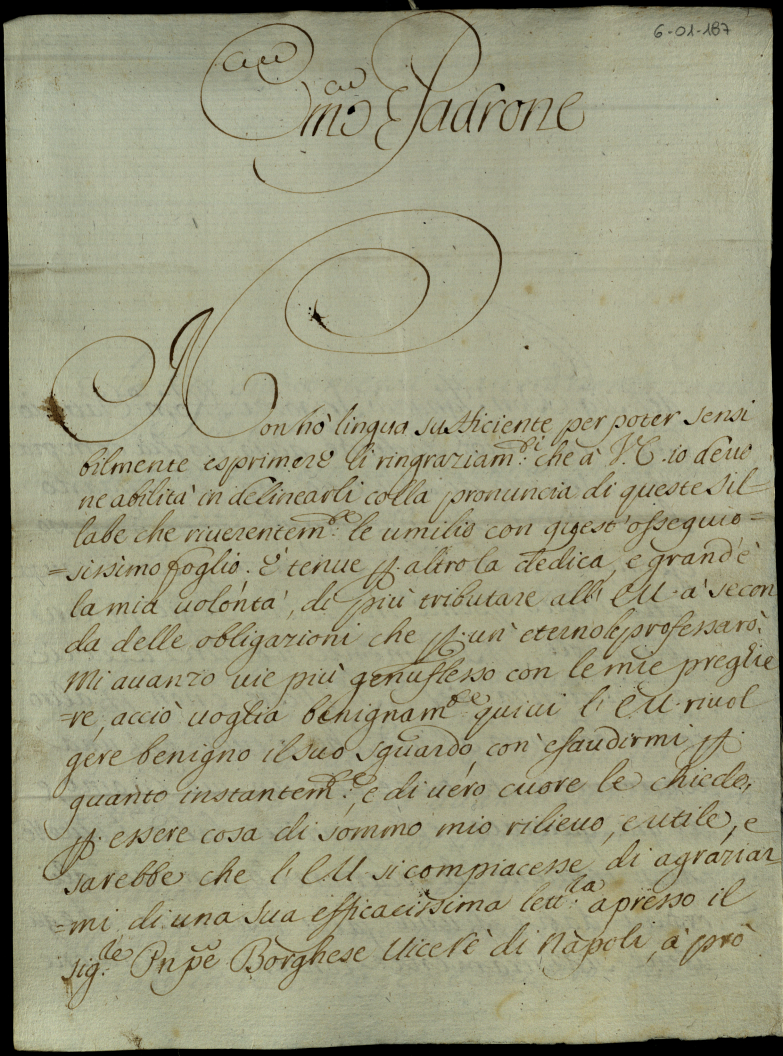 6-01-187
Em.o e Padrone
Non hò lingua sufficiente per poter sensi
bilmente esprimere li ringraziam.ti che à V.E. io deuo
ne abilità in delinearli colla pronuncia di queste Sil
labe che riuerentem.te le umilio con quest'ossequio=
=sissimo foglio. È tenue p. altro la dedica, e grand'è
la mia uolontà, di più tributare all' E.V. à secon
da delle obligazioni che p. un' eterno le professarò.
Mi auanzo uie più genuflesso con le mie preghie
=re, acciò uoglia benignam.te quiui l' E.V. riuol
gere benigno il suo sguardo, con esaudirmi p.
quanto instantem.te, e di uero cuore le chiedo,
p. essere cosa di sommo mio rilieuo, e utile, e
sarebbe che l' E.V. si compiacesse di agraziar
=mi di una sua efficacissima lett.ra apresso il
sig.re Pnpe Borghese Vicerè di Nàpoli, à prò